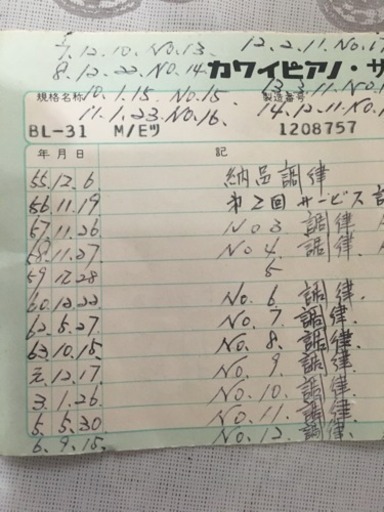 7.12.10. No.13. 12.2.11. No.17
8.12.22. No.14. カワイピアノ・サ
規格名称 10.1.15. No.15. 製造番号 13.3.11. No.1
11.1.23. No.16. 14.12.11. No.1
BL-31 M/Eツ 1208757
年月日 記
55.12.6. 納品調律
56.11.19 第2回サービス
57.11.26 No 3 調律
58.11.27 No 4 調律.
59 12.28 5
60.12.22 No. 6 調律.
62.5.27. No. 7. 調律.
63.10.15. No. 8. 調律.
元.12.17. No. 9. 調律.
3.1.26. No.10. 調律.
5.5.30 No.11. 調律.
6.9.15. No.12. 調律.